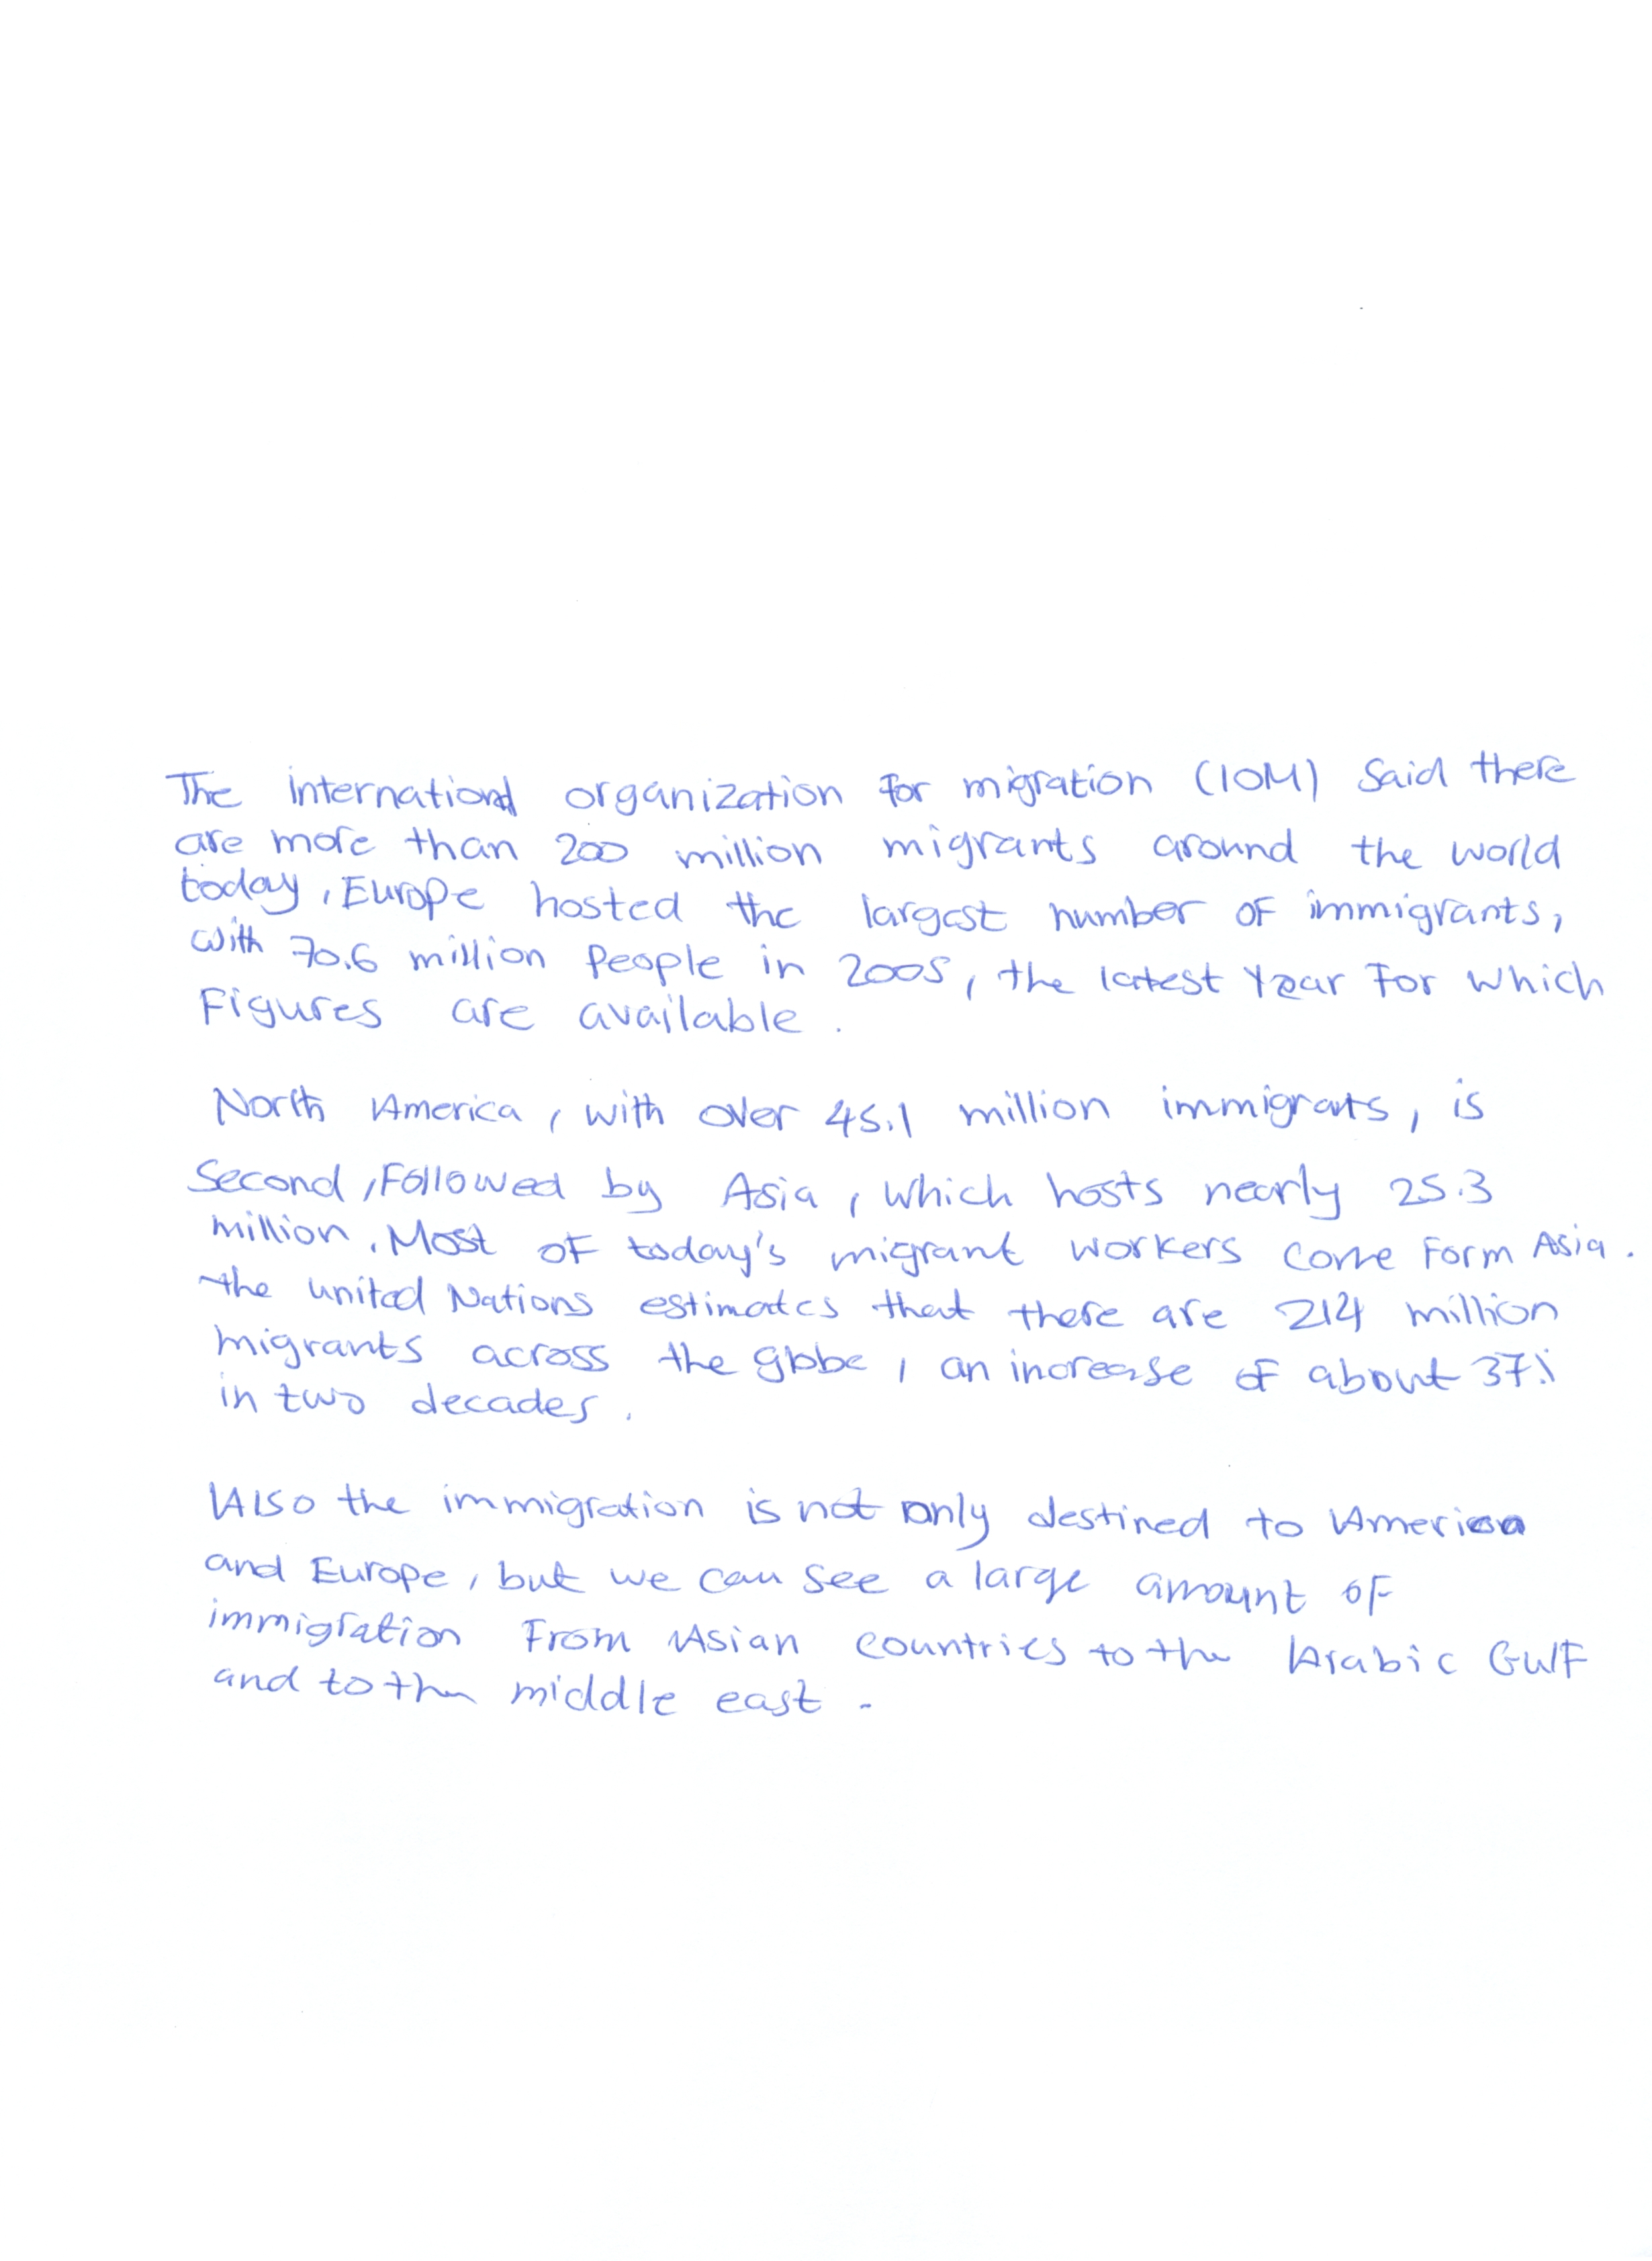 The international organization for migration (IOM) Said there
are more than 200 million migrants around the world
today, Europe hosted the largest number of immigrants,
with 70.6 million People in 2005, the latest Year For which
Figures are available.
North America, with over 45.1 million immigrats, is
Second, Followed by Asia, which hosts nearly 25.3
million. Most of today's migrant workers come Form Asia.
the united Nations estimates that there are 214 million
migrants across the globe, an increase of about 37%
in two decades.
Also the immigration is not only destined to America
and Europe, but we can see a large amount of
immigration From Asian countries to the Arabic Gulf
and to the middle east.